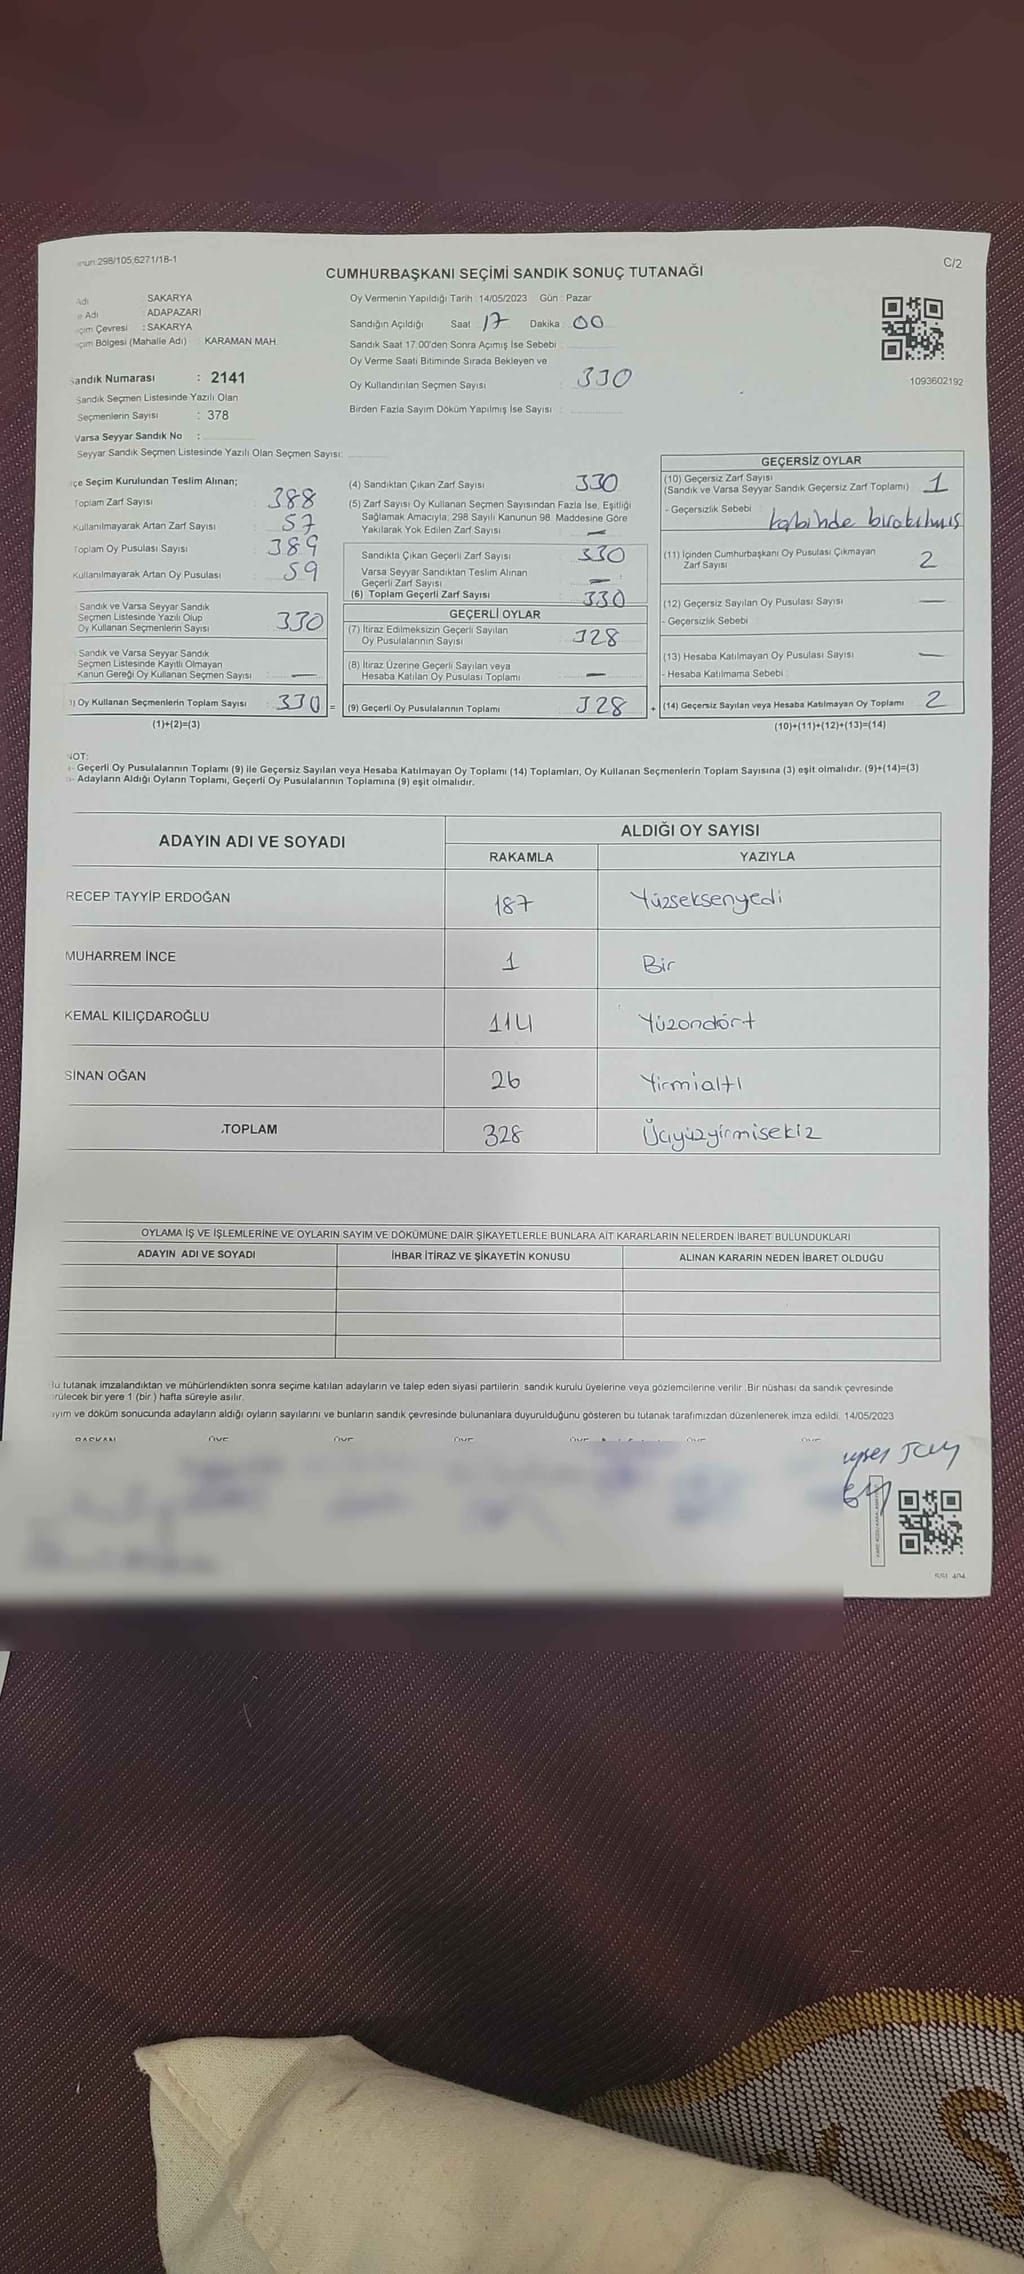 298/105,6271/18-1
C/2
CUMHURBAŞKANI SEÇİMİ SANDIK SONUÇ TUTANAĞI
Adı SAKARYA
Adı : ADAPAZARI
Çevresi : SAKARYA
Bölgesi (Mahalle Adı) : KARAMAN MAH.
Sandık Numarası : 2141
Sandık Seçmen Listesinde Yazılı Olan
Seçmenlerin Sayısı : 378
Varsa Seyyar Sandık No :
Seyyar Sandık Seçmen Listesinde Yazılı Olan Seçmen Sayısı:
Oy Vermenin Yapıldığı Tarih : 14/05/2023 Gün : Pazar
Sandığın Açıldığı Saat 17 Dakika : 00
Sandık Saat 17.00'den Sonra Açımış İse Sebebi :
Oy Verme Saati Bitiminde Sırada Bekleyen ve
Oy Kullandırılan Seçmen Sayısı : 330
Birden Fazla Sayım Döküm Yapılmış İse Sayısı :
1093602192
Seçim Kurulundan Teslim Alınan;
Toplam Zarf Sayısı : 388
Kullanılmayarak Artan Zarf Sayısı : 57
Toplam Oy Pusulası Sayısı : 389
Kullanılmayarak Artan Oy Pusulası : 59
Sandık ve Varsa Seyyar Sandık
Seçmen Listesinde Yazılı Olup
Oy Kullanan Seçmenlerin Sayısı 330
Sandık ve Varsa Seyyar Sandık
Seçmen Listesinde Kayıtlı Olmayan
Kanun Gereği Oy Kullanan Seçmen Sayısı : —
3) Oy Kullanan Seçmenlerin Toplam Sayısı : 330 =
(1)+(2)=(3)
(4) Sandıktan Çıkan Zarf Sayısı 330
(5) Zarf Sayısı Oy Kullanan Seçmen Sayısından Fazla İse, Eşitliği
Sağlamak Amacıyla, 298 Sayılı Kanunun 98. Maddesine Göre
Yakılarak Yok Edilen Zarf Sayısı —
Sandıkta Çıkan Geçerli Zarf Sayısı : 330
Varsa Seyyar Sandıktan Teslim Alınan
Geçerli Zarf Sayısı —
(6) Toplam Geçerli Zarf Sayısı : 330
GEÇERLİ OYLAR
(7) İtiraz Edilmeksizin Geçerli Sayılan
Oy Pusulalarının Sayısı : 328
(8) İtiraz Üzerine Geçerli Sayılan veya
Hesaba Katılan Oy Pusulası Toplamı : —
(9) Geçerli Oy Pusulalarının Toplamı : 328 +
GEÇERSİZ OYLAR
(10) Geçersiz Zarf Sayısı
(Sandık ve Varsa Seyyar Sandık Geçersiz Zarf Toplamı) : 1
- Geçersizlik Sebebi : kabinde bırakılmış
(11) İçinden Cumhurbaşkanı Oy Pusulası Çıkmayan
Zarf Sayısı 2
(12) Geçersiz Sayılan Oy Pusulası Sayısı : —
- Geçersizlik Sebebi
(13) Hesaba Katılmayan Oy Pusulası Sayısı : —
- Hesaba Katılmama Sebebi
(14) Geçersiz Sayılan veya Hesaba Katılmayan Oy Toplamı : 2
(10)+(11)+(12)+(13)=(14)
NOT:
- Geçerli Oy Pusulalarının Toplamı (9) ile Geçersiz Sayılan veya Hesaba Katılmayan Oy Toplamı (14) Toplamları, Oy Kullanan Seçmenlerin Toplam Sayısına (3) eşit olmalıdır. (9)+(14)=(3)
- Adayların Aldığı Oyların Toplamı, Geçerli Oy Pusulalarının Toplamına (9) eşit olmalıdır.
ADAYIN ADI VE SOYADI ALDIĞI OY SAYISI
RAKAMLA YAZIYLA
RECEP TAYYİP ERDOĞAN 187 Yüzseksenyedi
MUHARREM İNCE 1 Bir
KEMAL KILIÇDAROĞLU 114 Yüzondört
SİNAN OĞAN 26 Yirmialtı
TOPLAM 328 Üçyüzyirmisekiz
OYLAMA İŞ VE İŞLEMLERİNE VE OYLARIN SAYIM VE DÖKÜMÜNE DAİR ŞİKAYETLERLE BUNLARA AİT KARARLARIN NELERDEN İBARET BULUNDUKLARI
ADAYIN ADI VE SOYADI İHBAR İTİRAZ VE ŞİKAYETİN KONUSU ALINAN KARARIN NEDEN İBARET OLDUĞU
tutanak imzalandıktan ve mühürlendikten sonra seçime katılan adayların ve talep eden siyasi partilerin sandık kurulu üyelerine veya gözlemcilerine verilir. Bir nüshası da sandık çevresinde
bir yere 1 (bir ) hafta süreyle asılır.
ve döküm sonucunda adayların aldığı oyların sayılarını ve bunların sandık çevresinde bulunanlara duyurulduğunu gösteren bu tutanak tarafımızdan düzenlenerek imza edildi. 14/05/2023
BAŞKAN ÜYE ÜYE ÜYE ÜYE ÜYE ÜYE